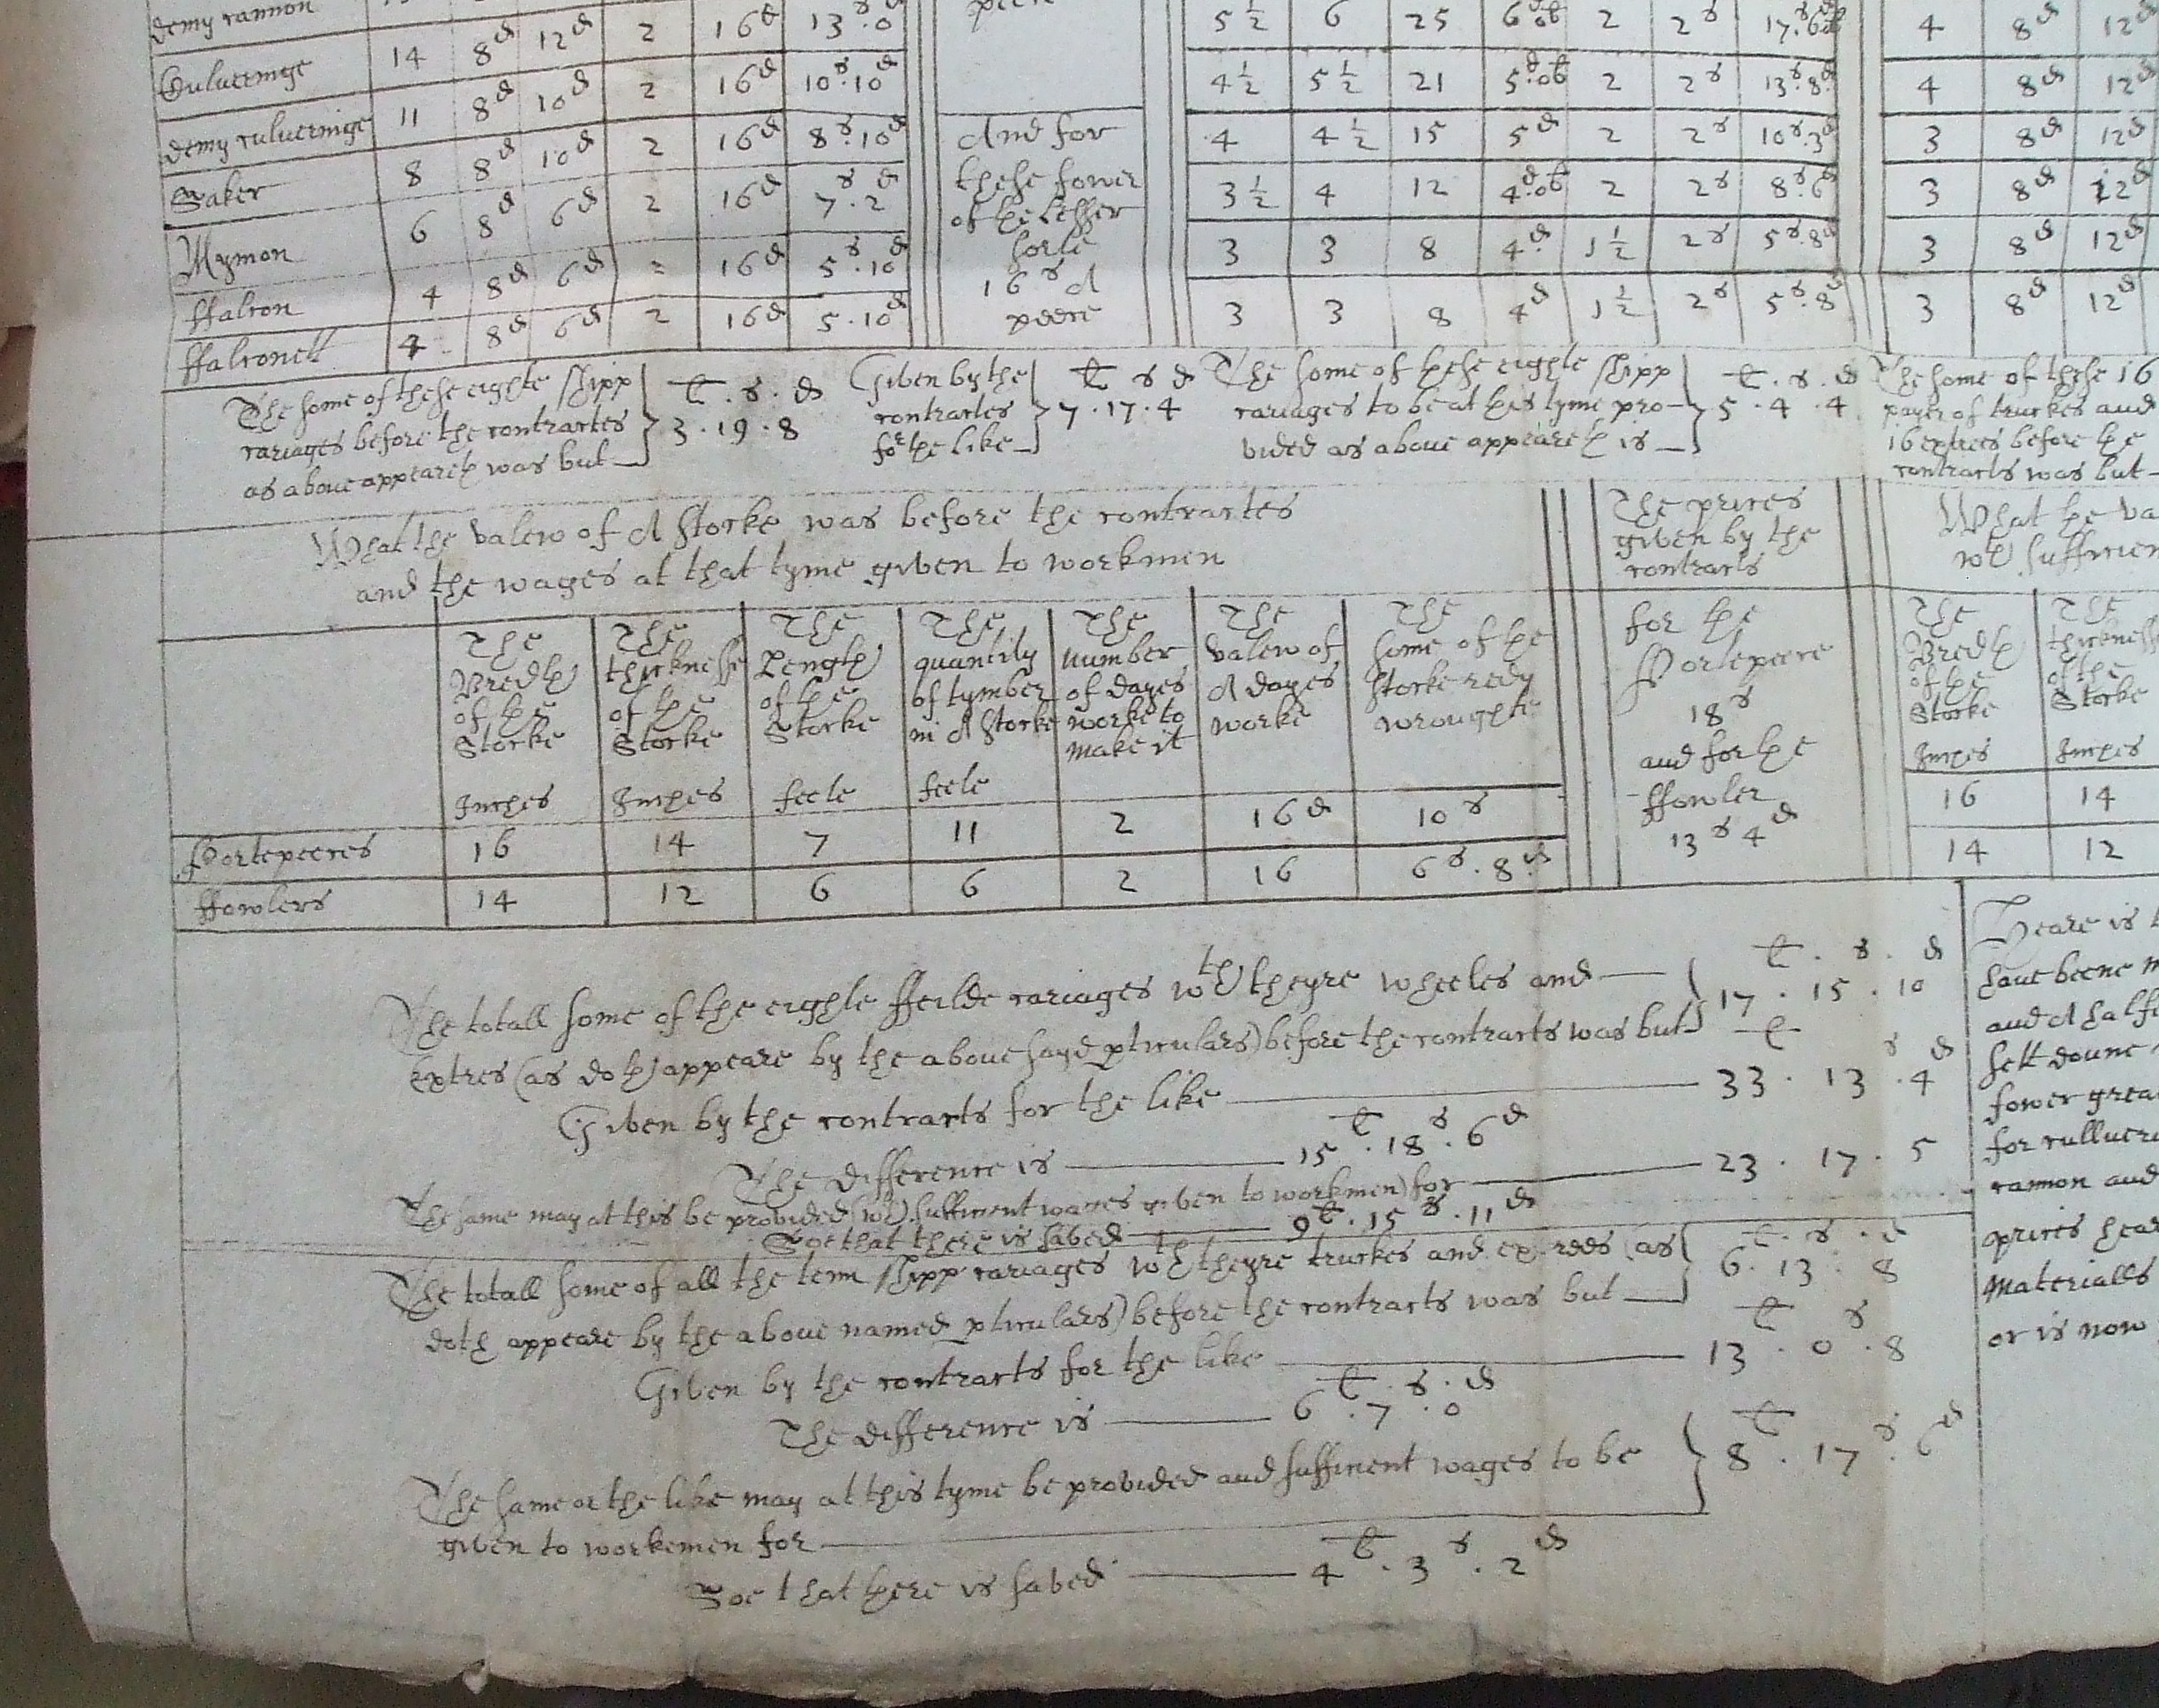 demy cannon
Culveringe 14 8d 12d 2 16d 13s.0
demy culveringe 11 8d 10d 2 16d 10s.10d
Saker 8 8d 10d 2 16d 8s.10d
Mymon 6 8d 6d 2 16d 7s.2d
ffalcon 4 8d 6d 2 16d 5s.10d
ffalconett 4 8d 6d 2 16d 5.10d
peece
And for
these fower
of the lesser
sorte
16s A
peece
5 1/2 6 25 6d.ob 2 2s 17s.6d 4 8d 12d
4 1/2 5 1/2 21 5d.ob 2 2s 13s.8d 4 8d 12d
4 4 1/2 15 5d 2 2s 10s.3d 3 8d 12d
3 1/2 4 12 4d.ob 2 2s 8s.6d 3 8d 12d
3 3 8 4d 1 1/2 2s 5s.8d 3 8d 12d
3 3 8 4d 1 1/2 2s 5s.8d 3 8d 12d
The some of these eighte shipp
cariages before the contractes
as above appeareth was but
li.s.d
3.19.8
Given by the
contractes
for the like
li s d
7.17.4
The some of these eighte shipp
cariages to be at this tyme pro-
vided as above appeareth is
li.s.d
5.4.4
The some of these 16
payer of truckes and
16 extrees before the
contracts was but
What the valew of A stocke was before the contractes
and the wages at that tyme given to workmen
The prices
given by the
contracts
What the va
wth sufficien
The
Bredth
of the
Stocke
Inches
The
thicknesse
of the
Stocke
Inches
The
Length
of the
Stocke
feete
The
quantity
of tymber
in A stocke
feete
The
number
of dayes
worke to
make it
The
valew of
A dayes
worke
The
some of the
stocke redy
wroughte
for the
Portepeece
18s
and for the
ffowler
13s 4d
The
Bredth
of the
Stocke
Inches
The
thickness
of the
Stocke
Inches
Portepeeces 16 14 7 11 2 16d 10s 16 14
ffowlers 14 12 6 6 2 16 6s.8d 14 12
The totall some of the eighte ffeilde cariages wth theyre wheeles and
extres (as doth appeare by the above sayd pticulars) before the contracts was but
li.s.d
17.15.10
Given by the contracts for the like
li s d
33.13.4
The difference is 15li.18s.6d
The same may at this be provided (wth sufficient wages given to workmen) for 23.17.5
Soe that there is saved 9li.15s.11d
The totall some of all the tenn shipp cariages wth theyre truckes and extrees (as
doth appeare by the above named pticulars) before the contracts was but
li.s.d
6.13.8
Given by the contracts for the like
li s
13.0.8
The difference is
li.s.d
6.7.0
The same or the like may at this tyme be provided and sufficent wages to be
given to workemen for
li
8.17s.6d
Soe that there is saved 4li.3s.2d
Heare is
have beene m
and A halfe
sett doune
fower grea
for culluer
cannon and
prices hea
materialls
or is now